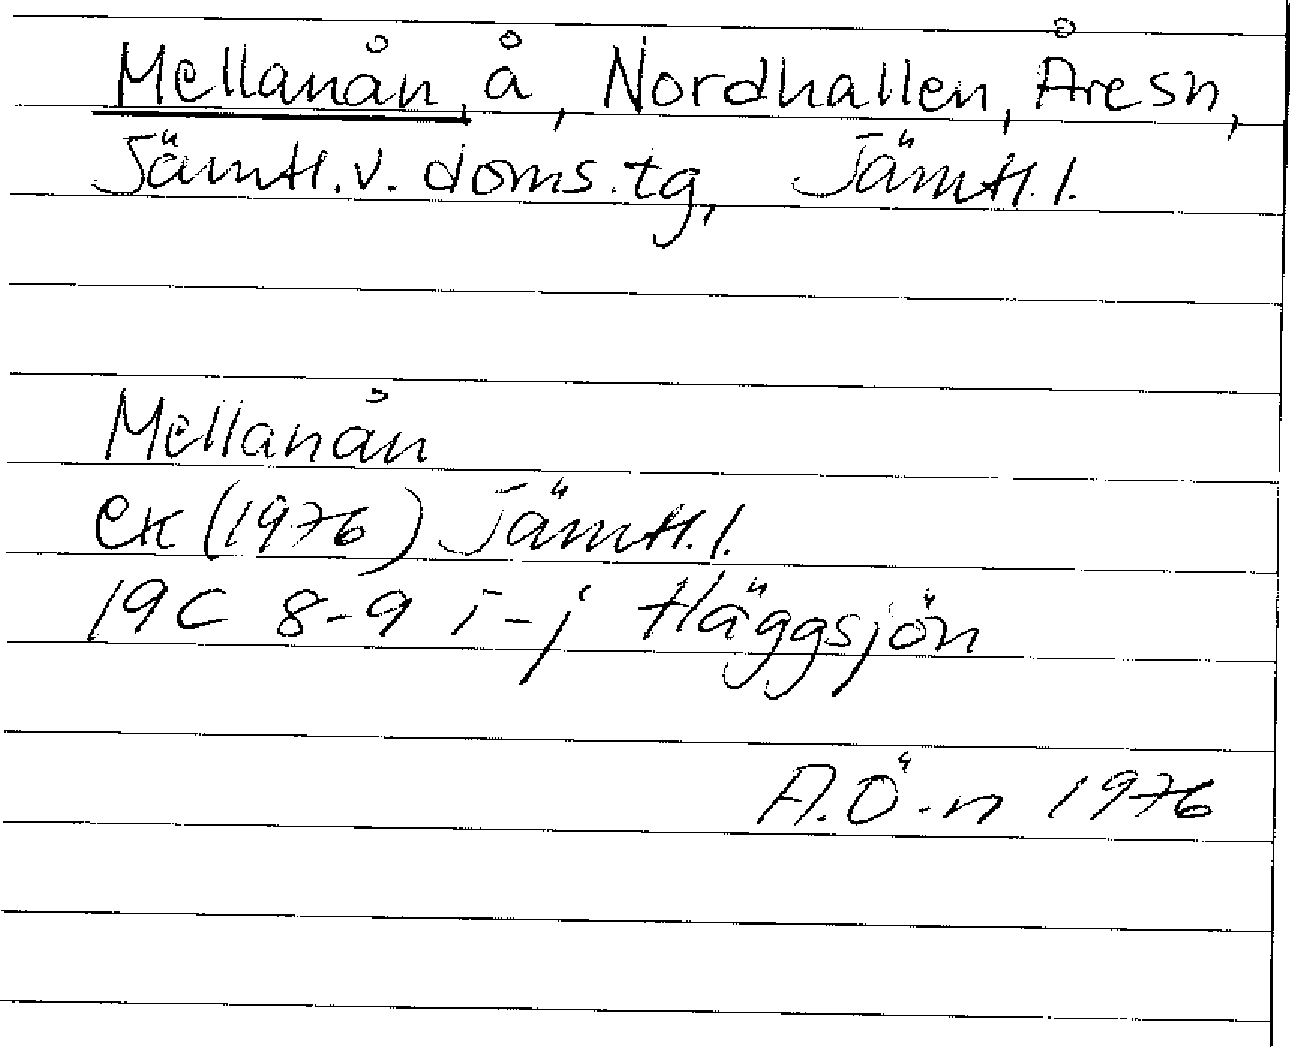 Mellanån, å, Nordhallen, Åre sn,
Jämtl. v. doms. tg, Jämtl. l.
Mellanån
ek (1976) Jämtl. l.
19C 8-9 i-j Häggsjön
A.Ö-n 1976